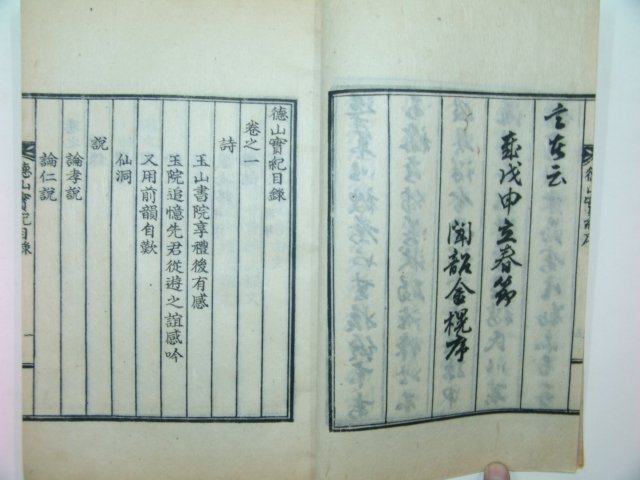 云爾
歲戊申立春節
聞韶金榥序
德山實紀目錄
卷之一
詩
玉山書院享禮後有感
玉院追憶先君從遊之誼感吟
又用前韻自歎
仙洞
說
論孝說
論仁說
德山實紀目錄
一